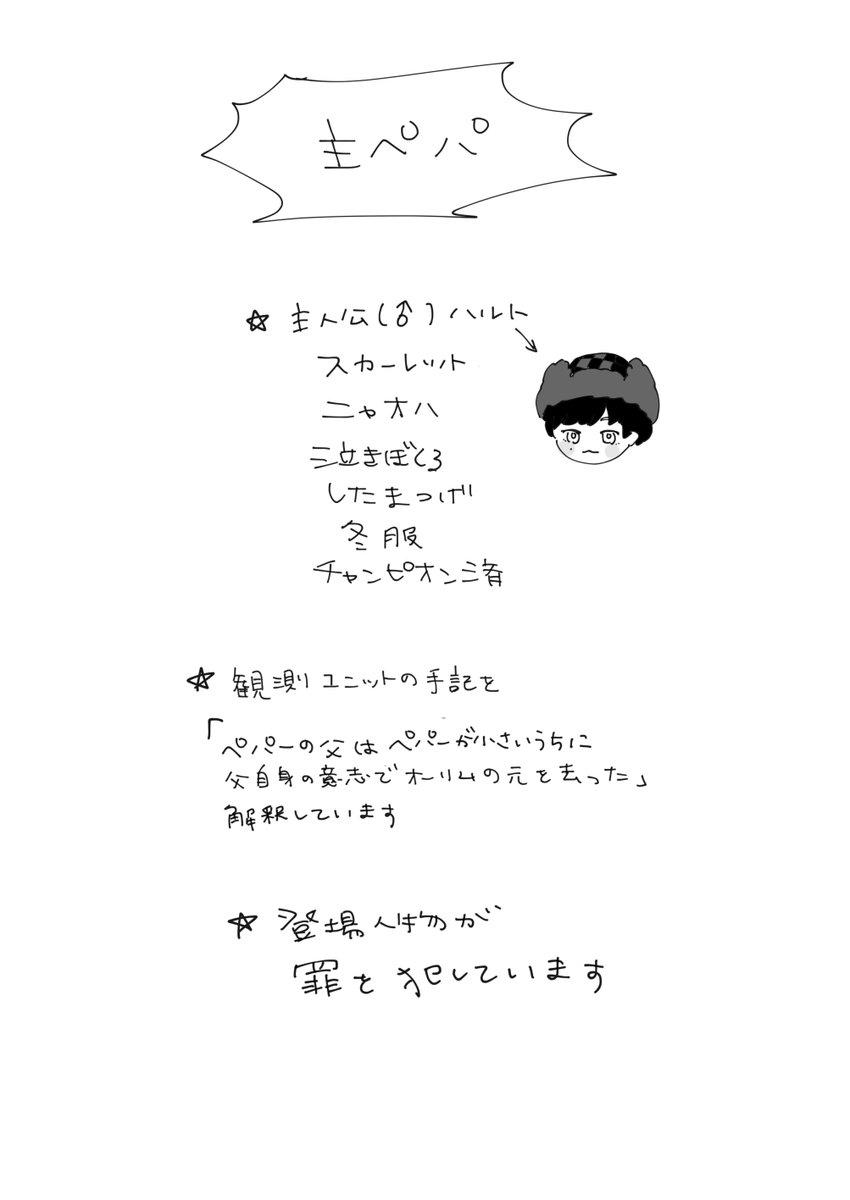 主ペパ
☆ 主人公(♂)ハルト
スカーレット
ニャオハ
泣きぼくろ
したまつげ
冬服
チャンピオン済
☆ 観測ユニットの手記を
「ペパーの父はペパーが小さいうちに
父自身の意志でオーリムの元を去った」
解釈しています
☆ 登場人物が
罪を犯しています